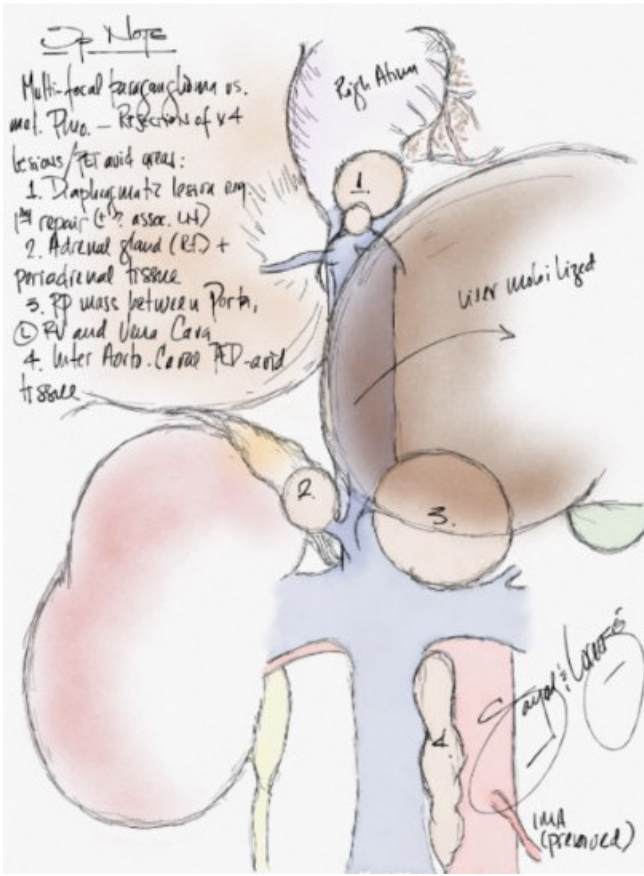 Op Note
Multi-focal paraganglioma vs.
met. Pheo. – Resection of x4
lesions/PET avid areas:
1. Diaphragmatic lesion req.
1ary repair (+ ? assoc. LN)
2. Adrenal gland (Rt) +
periadrenal tissue
3. RP mass between Porta,
Ⓛ RV and Vena Cava
4. Inter Aorto-Caval PET-avid
tissue
Right Atrium
1.
liver mobilized
2.
3.
4.
IMA
(preserved)